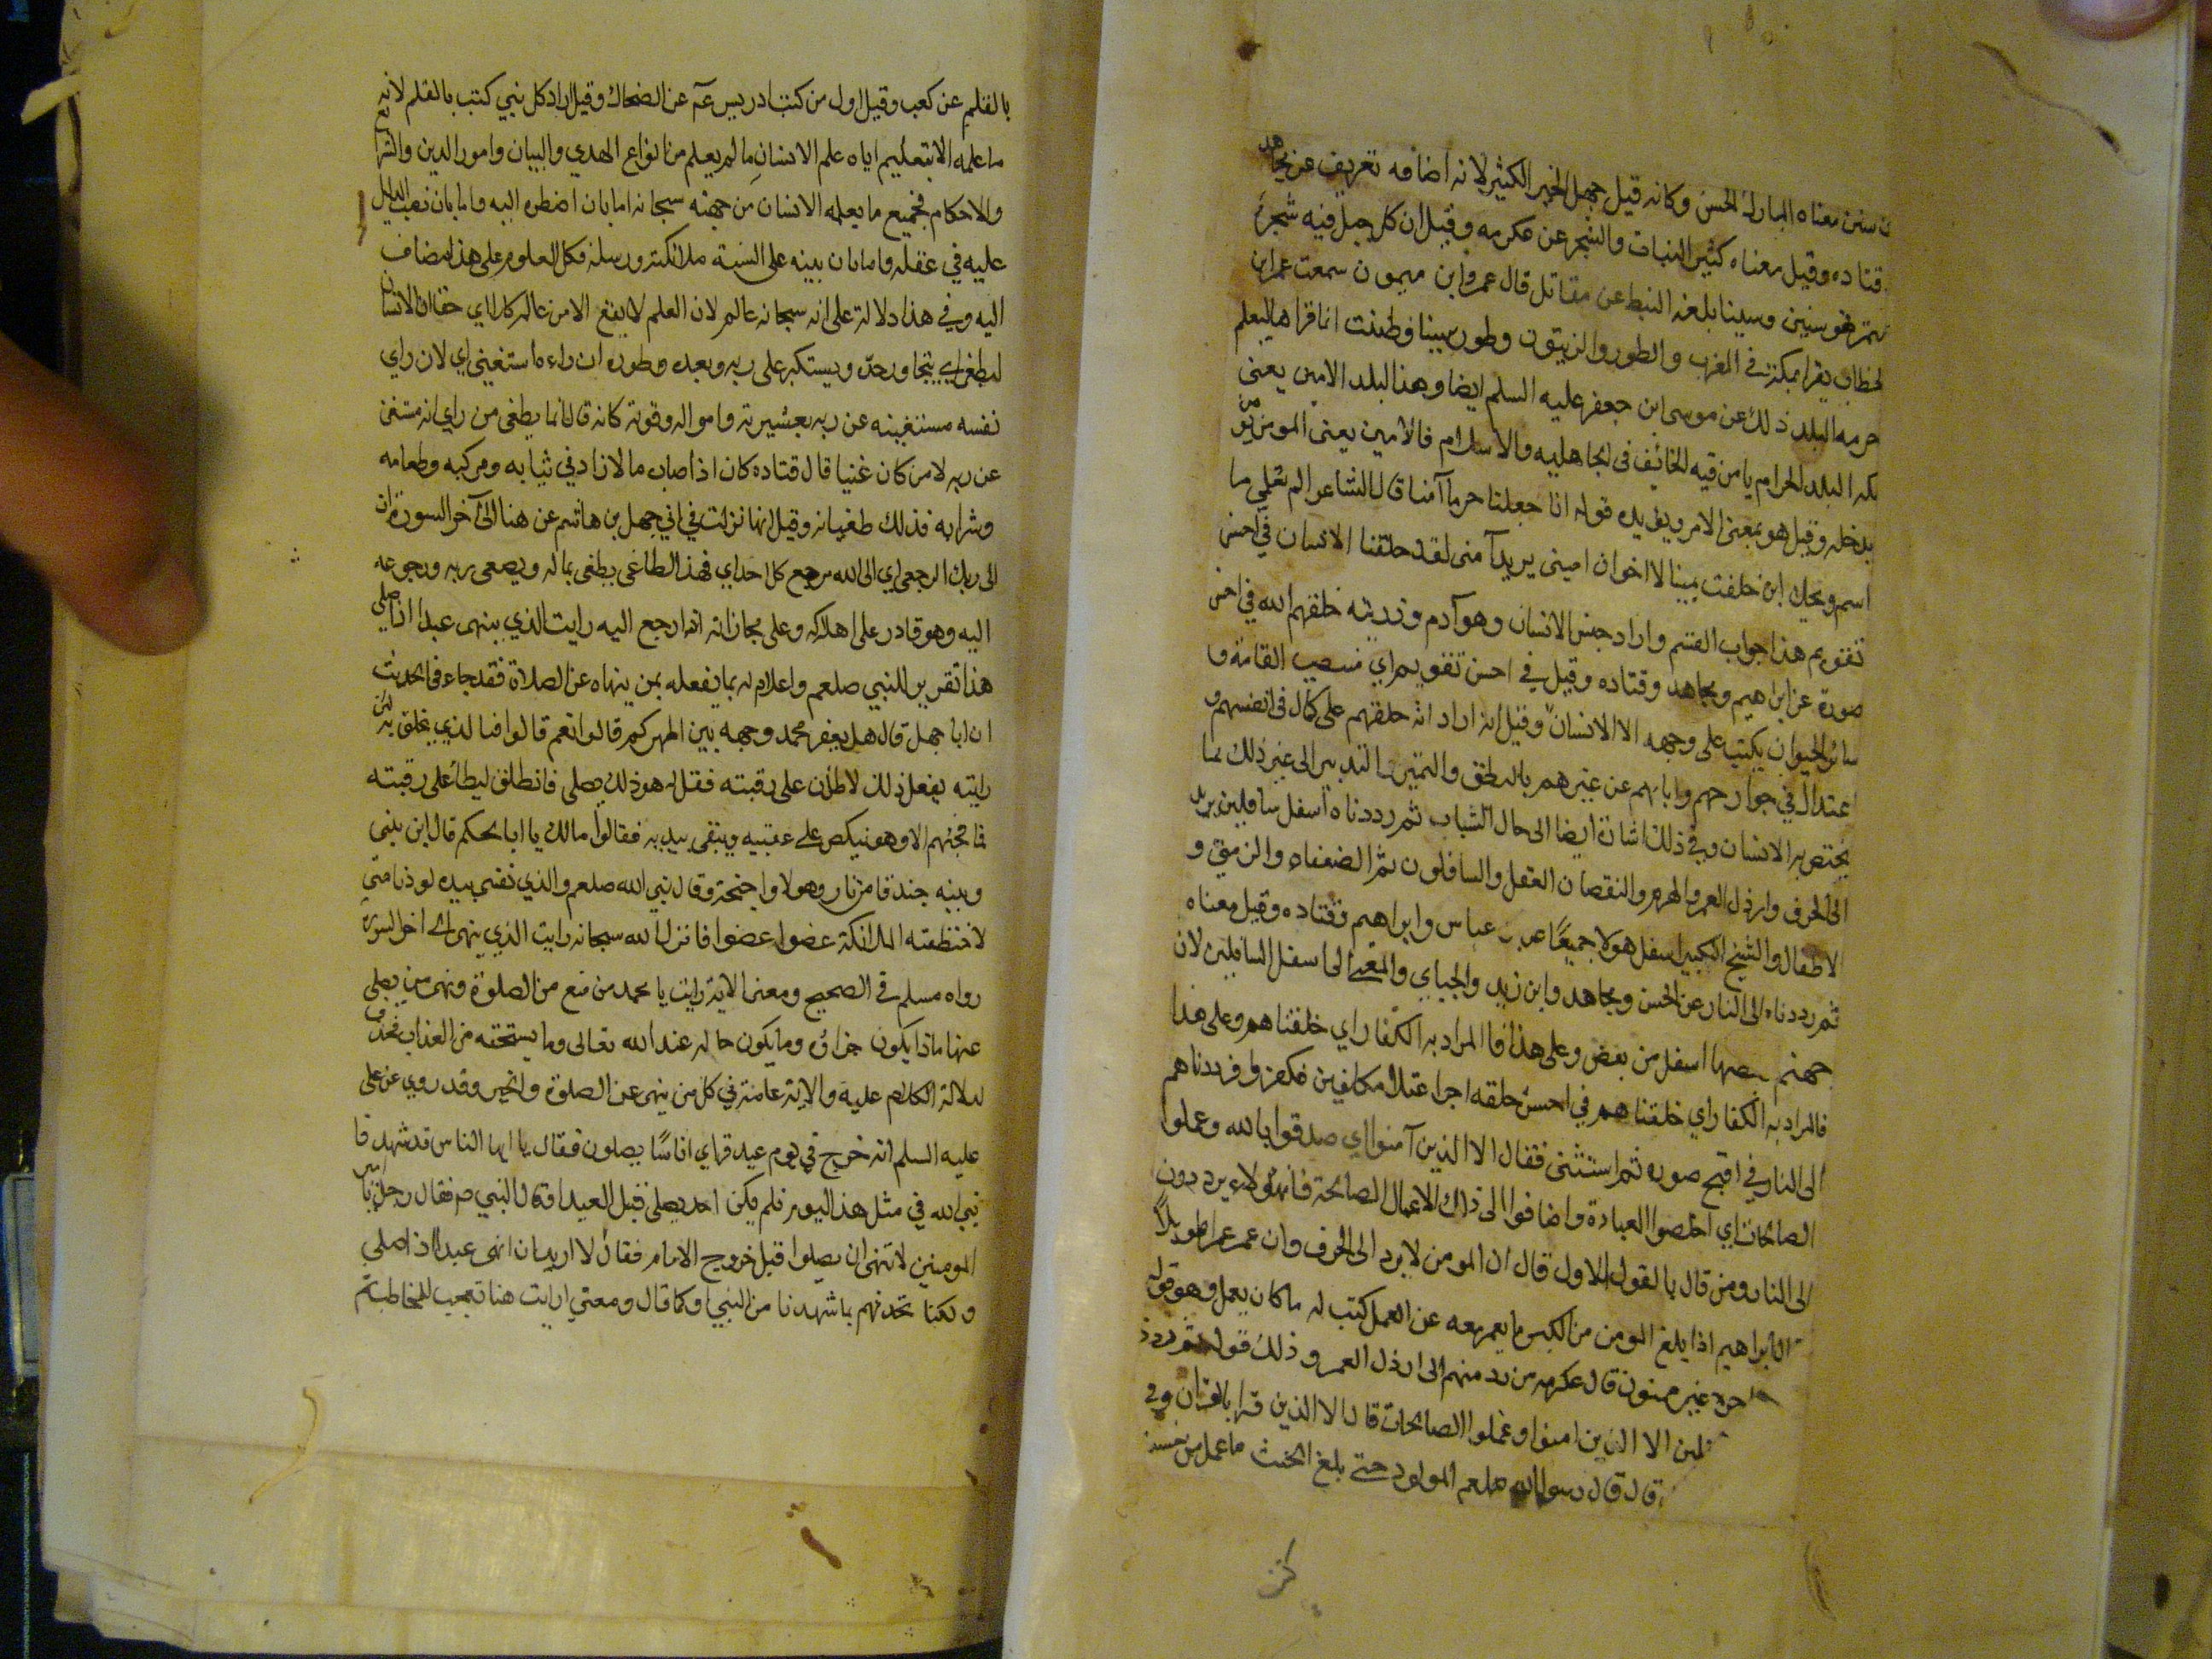 سنين معناه المبارك الحسن وكانه قيل جبل الخير الكثير لانه اضافه تعريف عن مجاهد
قتاده وقيل معناه كثير النبات والشجر عن عكرمه وقيل ان كل جبل فيه شجرة
نحو سنين وسينا بلغه النبط عن مقاتل قال عمرو ابن ميمون سمعت عمر ابن
الخطاب يقرا بمكة في المغرب والطور والزيتون وطور سينا فظننت انما قراها ليعلم
حرمه البلد ذلك عن موسى ابن جعفر عليه السلم ايضا وهذا البلد الامين يعني
مكه البلد الحرام يامن فيه الخائف في الجاهليه والاسلام فالامين يعني المومن من
يدخله وقيل هو بمعنى الامن ويؤيده قوله انا جعلنا حرما آمنا قال الشاعر الم تعلمي ما
اسم ويحك اني حلفت يمينا لا اخون اميني يريد آمني لقد خلقنا الانسان في احسن
تقويم هذا جواب القسم واراد جنس الانسان وهو آدم وذريته خلقهم الله في احسن
صورة عن ابراهيم ومجاهد وقتاده وقيل في احسن تقويم اي منتصب القامة و
سائر الحيوان يكب على وجهه الا الانسان وقيل انه اراد انه خلقهم على كمال في انفسهم و
اعتدال في جوارحهم وابانهم عن غيرهم بالنطق والتميز والتدبير الى غير ذلك مما
يختص به الانسان وفي ذلك اشارة ايضا الى حال الشباب ثم رددناه اسفل سافلين يريد
الى الخرف وارذل العمر والهرم والنقصان العقل والسافلون ثم الضعفاء والزمنى و
الاطفال والشيخ الكبير اسفل هولا جميعًا عن عباس وابراهيم وقتاده وقيل معناه
ثم رددناه الى النار عن الحسن ومجاهد وابن زيد والجباي والمعنى الى اسفل السافلين لان
جهنم بعضها اسفل من بعض وعلى هذا فا المراد به الكفار اي خلقناهم وعلى هذا
فالمراد به الكفار اي خلقناهم في احسن خلقه احرا عقلا مكلفين فكفروا فرددناهم
الى النار في اقبح صوره ثم استثنى فقال الا الذين آمنوا اي صدقوا بالله وعملوا
الصالحات اي اخلصوا العبادة واضافوا الى ذلك الاعمال الصالحة فان هؤلاء يردون
الى النار ومن قال بالقول الاول قال ان المومن لا يرد الى الخرف وان عمر عمرا طويلاً
ابراهيم اذا بلغ المومن من الكبر ما يعجز معه عن العمل كتب له ما كان يعمل وهو قوله
اجره غير ممنون قال عكرمه من رد منهم الى ارذل العمر و ذلك قوله ثم رددناه
الا الذين امنوا وعملوا الصالحات قال الا الذين قرا بالقران وفي
قال قال رسول الله صلعم المولود حتى بلغ الحنث ما عمل من حسنة
بالقلم عن كعب وقيل اول من كتب ادريس عم عن الضحاك وقيل اراد كل نبي كتب بالقلم لانه
ما علمه الا بتعليم اياه علم الانسان ما لم يعلم من انواع الهدي والبيان وامور الدين والشرايع
والاحكام فجميع ما يعلمه الانسان من جهته سبحانه اما بان اضطره اليه واما بان نصب الدليل
عليه في عقله واما بان بينه على السنة ملائكته ورسله فكل العلوم على هذا مضاف
اليه وفي هذا دلالة على انه سبحانه عالم لان العلم لا يقع الا من عالم كلا اي حقا ان الانسان
ليطغى اي يتجاوز حدّه ويستكبر على ربه ويعدو طوره ان راءه استغنى اي لان راي
نفسه مستغنيه عن ربه بعشيرته وامواله وقوته كانه قال انما يطغى من راي انه مستغن
عن ربه لا من كان غنيا قال قتاده كان اذا صاب مالا زاد في ثيابه ومركبه وطعامه
وشرابه فذلك طغيانه وقيل انها نزلت في ابي جهل بن هاشم عن هنا الى آخر السورة ان
الى ربك الرجعى اي الى الله مرجع كل احد اي فهذا الطاغي يطغى بماله ويعصي ربه ورجوعه
اليه وهو قادر على اهلاكه وعلى مجازاته اذا رجع اليه رايت الذي ينهى عبدا اذا صلى
هذا تقرير للنبي صلعم واعلام له بما يفعله بمن ينهاه عن الصلاة فقد جاء في الحديث
ان ابا جهل قال هل يعفر محمد وجهه بين اظهركم قالوا نعم قالوا فبا لذي يحلق به لئن
رايته يفعل ذلك لاطان على رقبته فقيل له هو ذلك يصلي فانطلق ليطأ على رقبته
فما فجئهم الا وهو ينكص على عقبيه ويتقي بيديه فقالوا مالك يا ابا الحكم قال ابن بيني
وبينه خندقا من نار وهولا واجنحة وقال نبي الله صلعم والذي نفسي بيده لو دنا مني
لاختطفته الملائكة عضوا عضوا فانزل الله سبحانه رايت الذي ينهى الى اخر السورة
رواه مسلم في الصحيح ومعنا الاية رايت يا محمد من منع من الصلوة ونهى من يصلي
عنها ماذا يكون جزاؤه وما يكون حاله عند الله تعالى وما يستحقه من العذاب فحذف
لدلالة الكلام عليه والاية عامة في كل من ينهى عن الصلوة والخير وقد روي عن علي
عليه السلم انه خرج في يوم عيد فراي اناسًا يصلون فقال يا ايها الناس قد شهدنا
نبي الله في مثل هذا اليوم فلم يكن احد يصلي قبل العيد او قال النبي ص فقال رجل يا امير
المومنين لا تنهى ان يصلوا قبل خروج الامام فقال لا اريد ان انهى عبدا اذا صلى
ولكنا نحدثهم بما شهدنا من النبي او كما قال ومعنى ارايت هنا تعجيب للمخاطب ثم